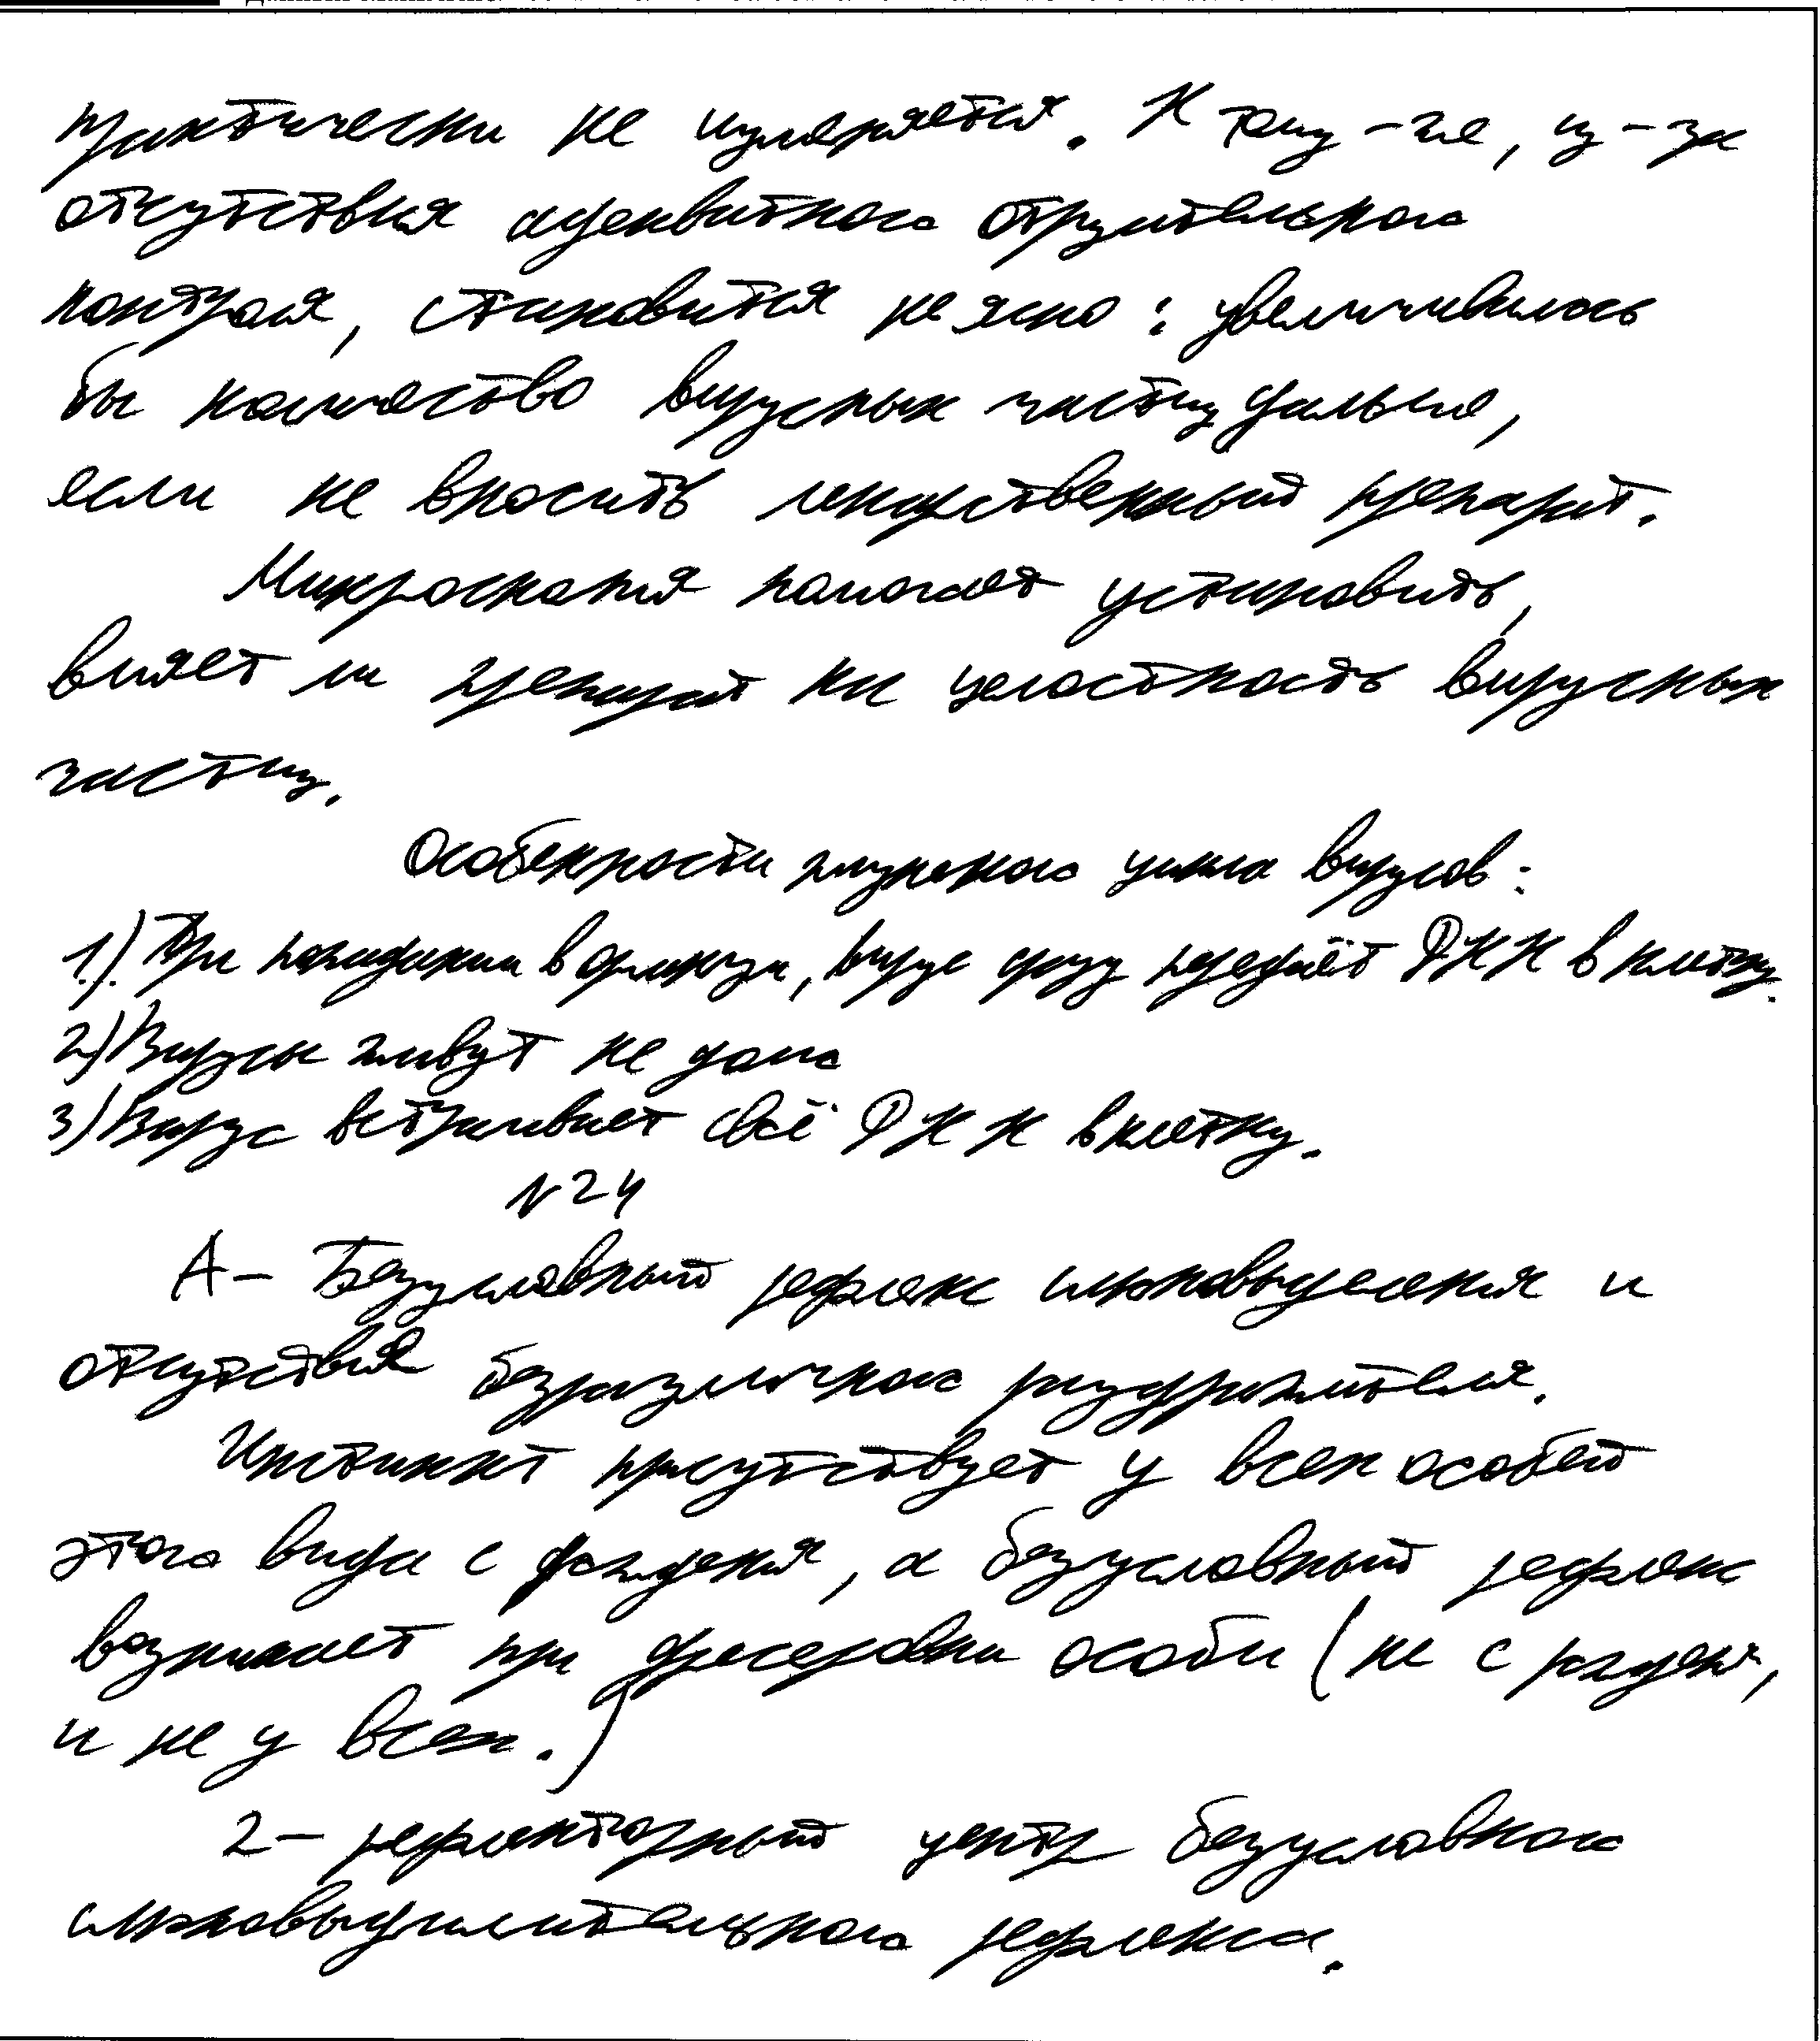 практически не изменяется. К тому-же, из-за
отсутствия адекватного отрицательного
контроля, становится не ясно: увеличивалось
бы количество вирусных частиц дальше,
если не вносить лекарственный препарат.
Микроскопия помогает установить,
влияет ли препарат на целостность вирусных
частиц.
Особенности жизненного цикла вирусов:
1.) При попадании в организм, вирус сразу передаёт ДНК в клетку.
2) Вирусы живут не долго
3) Вирус встраивает своё ДНК в клетку.
№24
А – Безусловный рефлекс слюновыделения и
отсутствия безразличного раздражителя.
Инстинкт присутствует у всех особей
этого вида с рождения, а безусловный рефлекс
возникает при дрессировки особи (не с рождения,
и не у всех.)
2 – рефлекторный центр безусловного
слюновыделительного рефлекса.